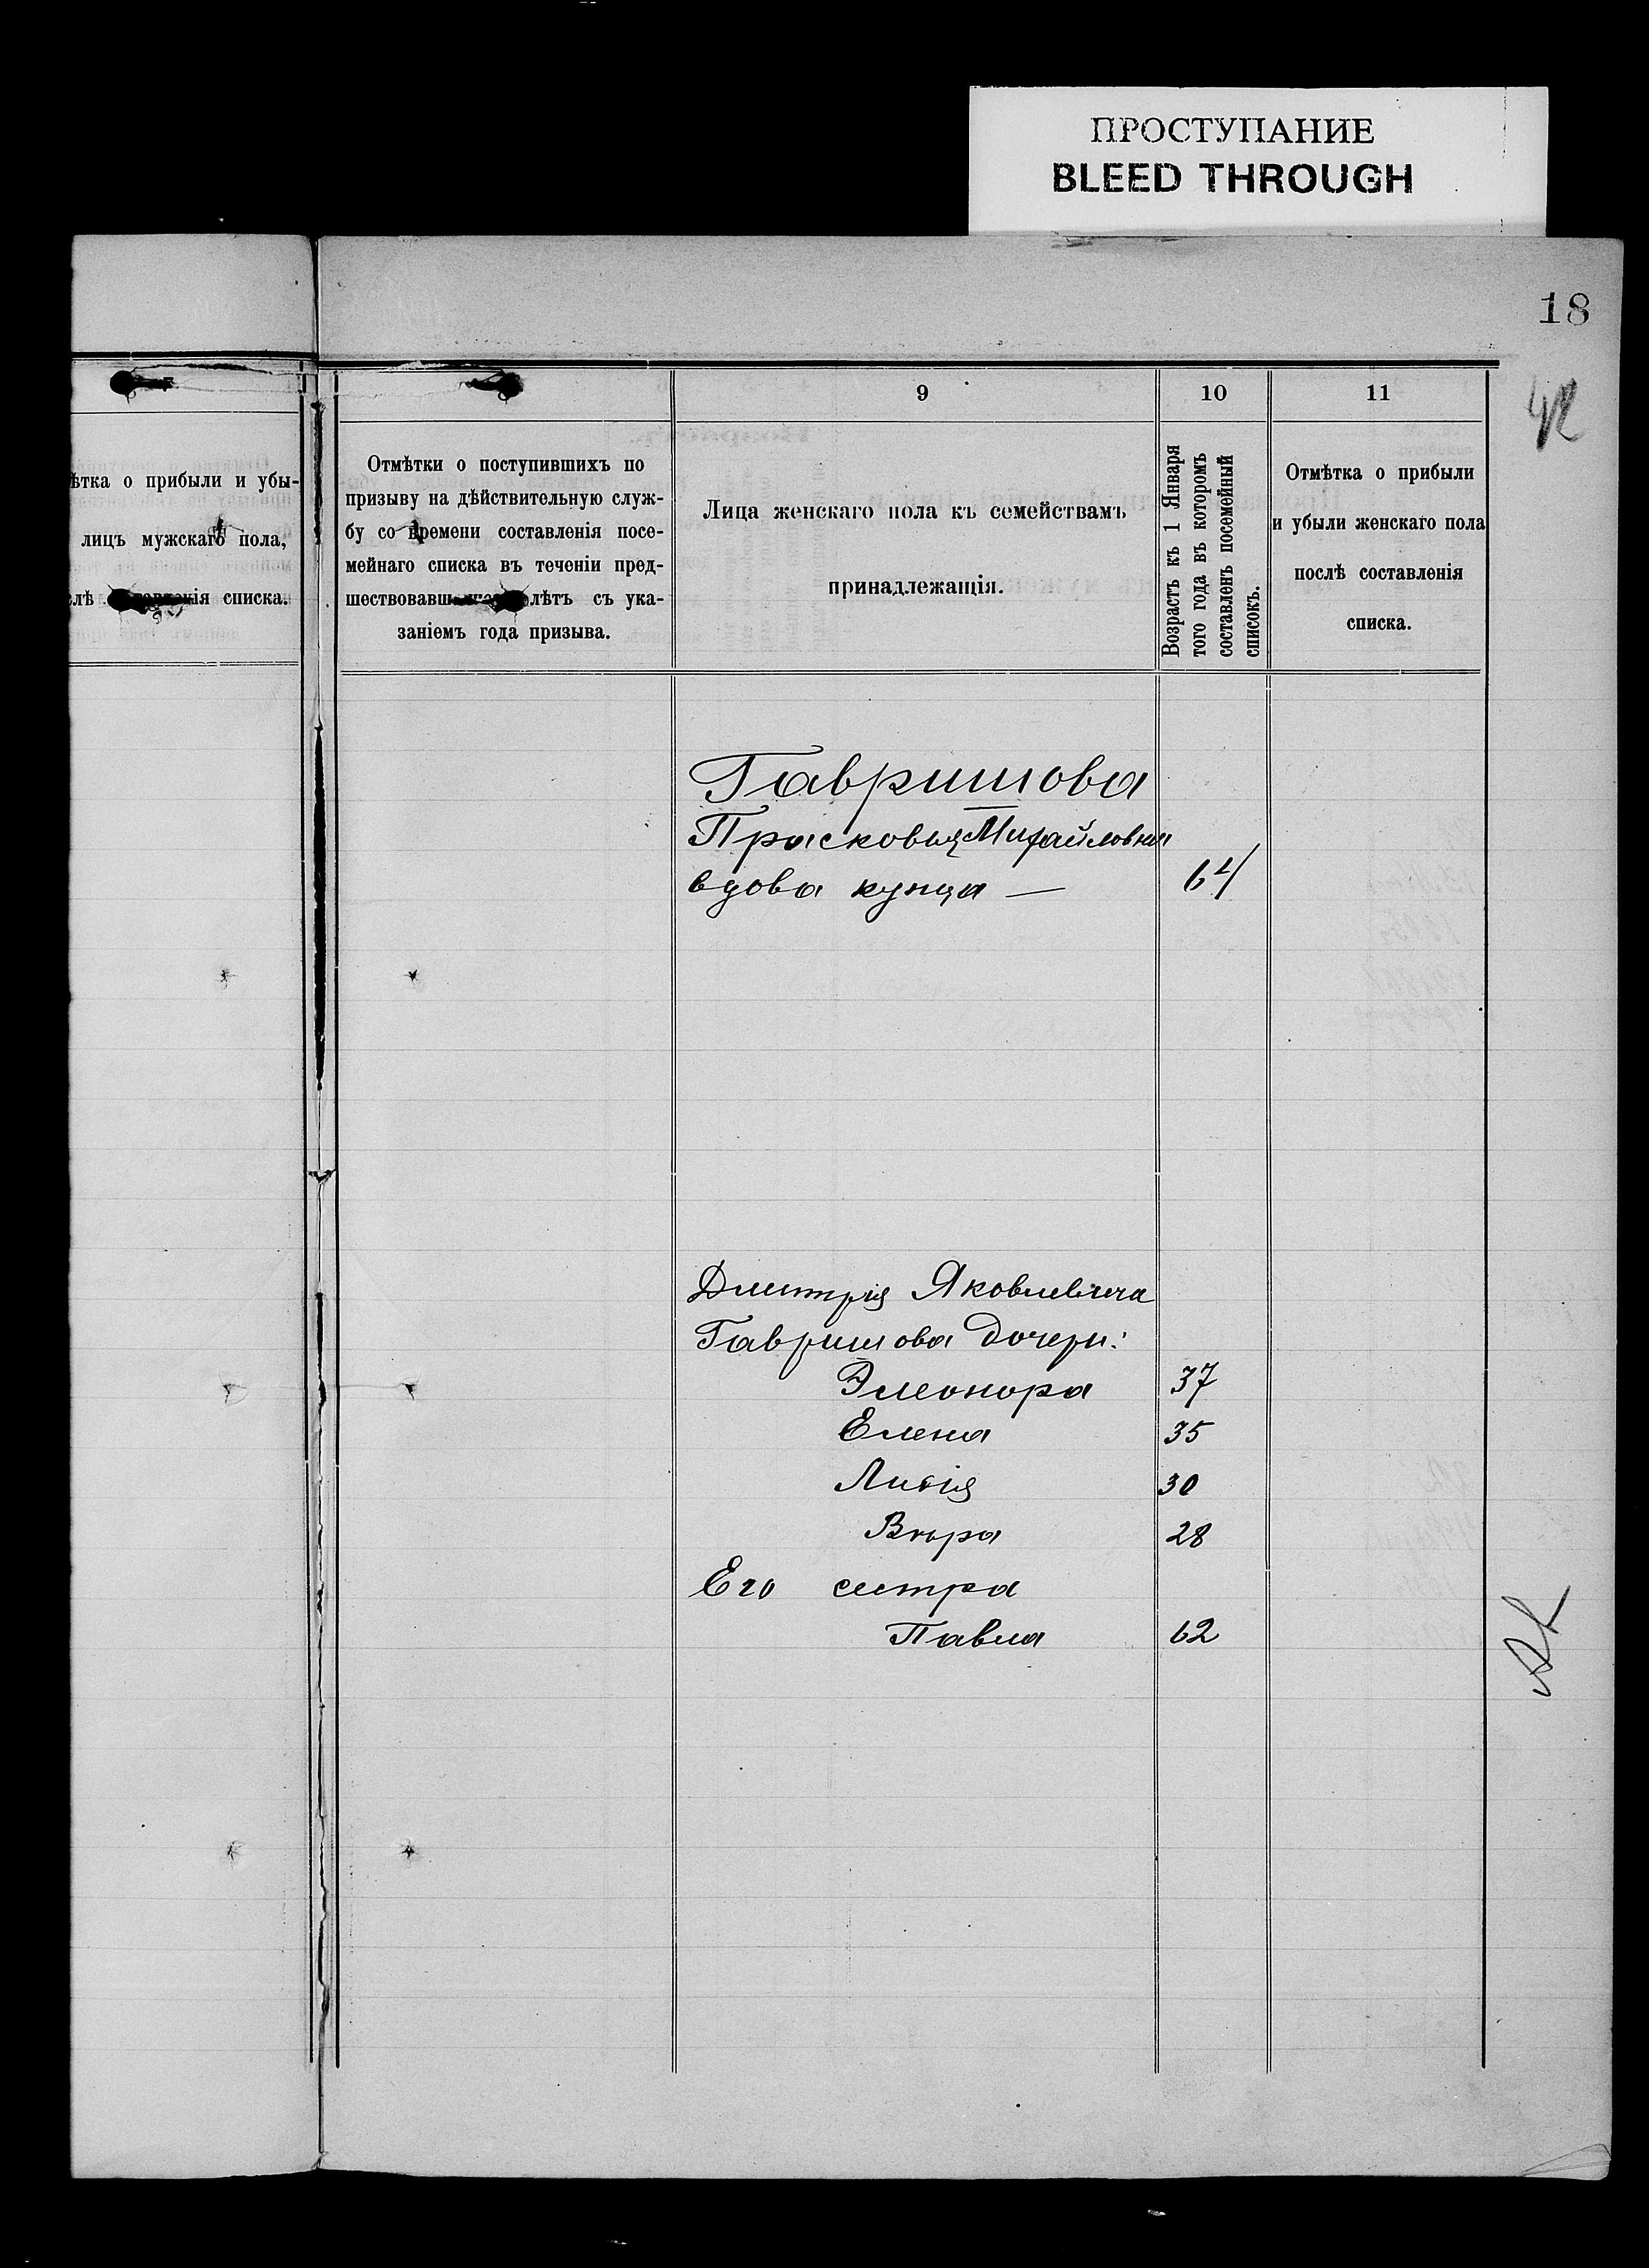 ПРОСТУПАНИЕ
BLEED THROUGH
18
ѣтка о прибыли и убы-
лицъ мужскаго пола,
списка.
Отмѣтки о поступившихъ по
призыву на дѣйствительную служ-
бу со времени составленія посе-
мейнаго списка въ теченіи пред-
шествовавш лѣтъ съ ука-
заніемъ года призыва.
9
Лица женскаго пола къ семействамъ
принадлежащія.
10
Возрастъ къ 1 Января
того года въ которомъ
составленъ посемейный
списокъ.
11
Отмѣтка о прибыли
и убыли женскаго пола
послѣ составленія
списка.
Гавришова
Прасковья Михайловна
вдова купца — 64
Дмитрія Яковлевича
Гавришова дочери:
Элеонора 37
Елена 35
Лидія 30
Вѣра 28
Его сестра
Павла 62